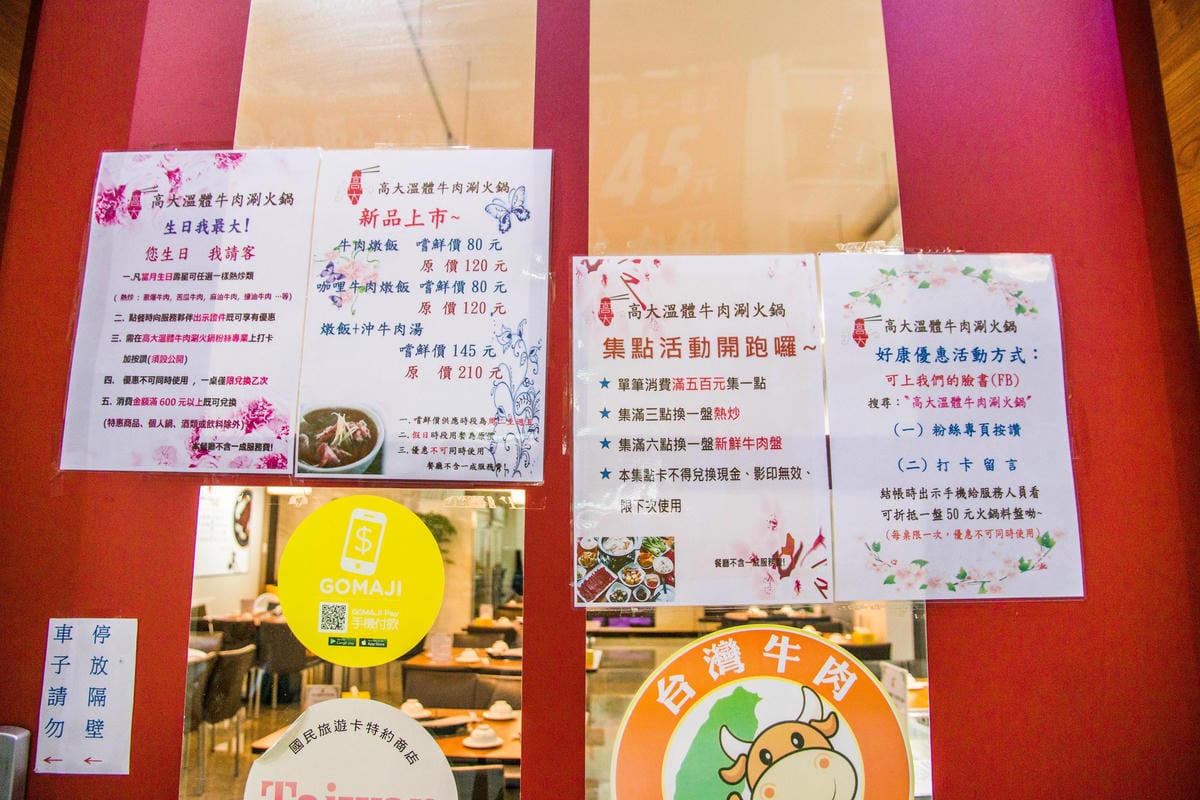 高大溫體牛肉涮火鍋
生日我最大!
您生日 我請客
一.凡當月生日壽星可任選一樣熱炒類
(熱炒:蔥爆牛肉,苦瓜牛肉,麻油牛肉,緣油牛肉…等)
二.點餐時向服務夥伴出示證件既可享有優惠
三.需在高大溫體牛肉涮火鍋粉絲專業上打卡
加按讚(須設公開)
四. 優惠不可同時使用,一桌僅限兌換乙次
五.消費金額滿600元以上既可兌換
(特惠商品、個人鍋、酒類或飲料除外)
本餐廳不含一成服務費!
高大
高大溫體牛肉涮火鍋
新品上市~
牛肉燉飯 嚐鮮價80元
原 價120元
咖哩牛肉燉飯 嚐鮮價80元
原 價120元
燉飯+沖牛肉湯
嚐鮮價145元
原 價210元
一.嚐鮮價供應時段為周一至週五
二.假日時段用餐為原價
三.優惠不可同時使用
餐廳不含一成服務費!
高大
高大溫體牛肉涮火鍋
集點活動開跑囉~
★ 單筆消費滿五百元集一點
★ 集滿三點換一盤熱炒
★ 集滿六點換一盤新鮮牛肉盤
★ 本集點卡不得兌換現金、影印無效、
限下次使用
餐廳不含一成服務費!
高大
高大溫體牛肉涮火鍋
好康優惠活動方式:
可上我們的臉書(FB)
搜尋:"高大溫體牛肉涮火鍋"
(一)粉絲專頁按讚
(二)打卡留言
結帳時出示手機給服務人員看
可折抵一盤50元火鍋料盤呦~
(每桌限一次,優惠不可同時使用)
GOMAJI
GOMAJI Pay
手機付款
停放隔壁
車子請勿
← ←
國民旅遊卡特約商店
Taiwan
台灣牛肉